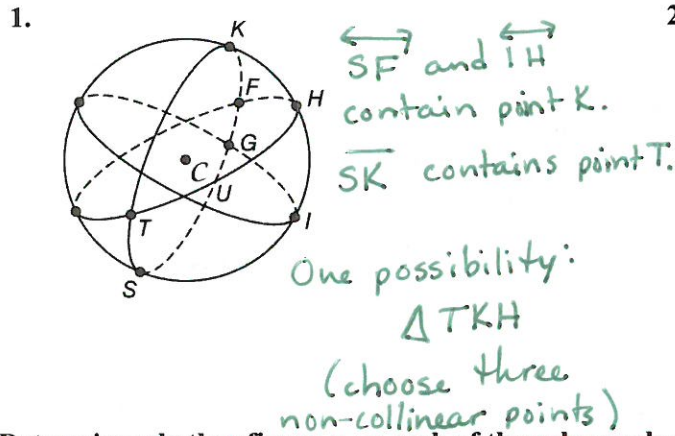 1.
2
K
F
H
G
C
U
T
I
S
SF and IH
contain point K.
SK contains point T.
One possibility:
Δ TKH
(choose three
non-collinear points)